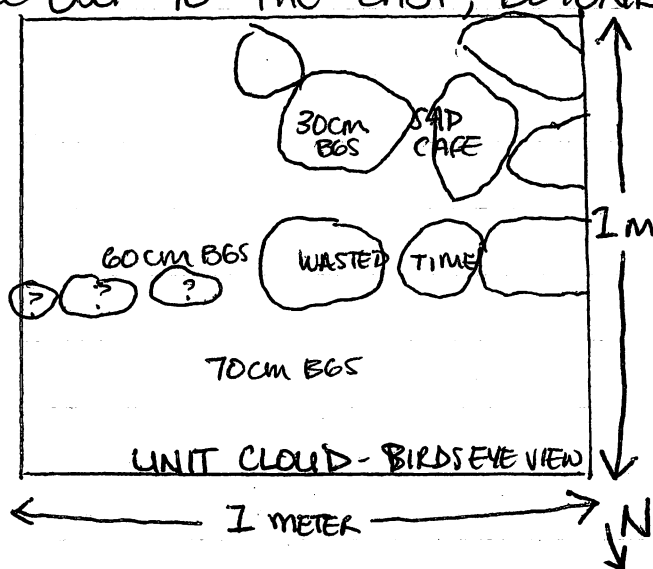 TO THE EAST,
30CM
BGS
SAD
CAFE
1M
60CM BGS
WASTED TIME
? ? ?
70CM BGS
UNIT CLOUD - BIRDSEYE VIEW
1 METER
N